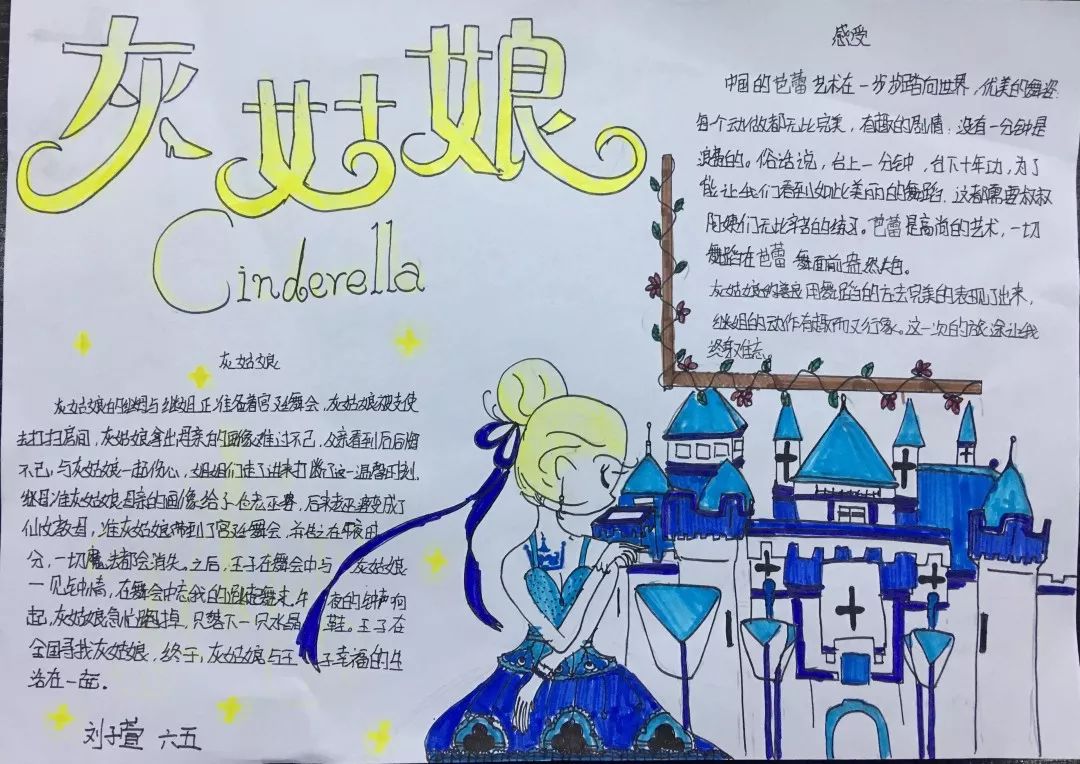 灰姑娘
Cinderella
灰姑娘
灰姑娘的继母与继姐正准备着宫廷舞会,灰姑娘被支使
去打扫房间,灰姑娘拿出母亲的画像难过不已,父亲看到后后悔
不已,与灰姑娘一起伤心,姐姐们走了进来打断了这一温馨时刻.
继母灰姑娘母亲的画像给了老巫婆,后来老巫婆变成了
仙女教母,灰姑娘带到了宫廷舞会,并在午夜时
分,一切魔法都会消失。之后,王子在舞会中与灰姑娘
一见钟情,在舞会中舞来,午夜的钟声响
起,灰姑娘急忙跑掉,只落下一只水晶鞋。王子在
全国寻找灰姑娘,终于,灰姑娘与王子幸福的生
活在一起。
刘子萱 六五
感受
中国的芭蕾艺术在一步步踏向世界,优美的舞姿.
每个动做都无比完美,有趣的剧情;没有一分钟是
浪费的。俗话说,台上一分钟,台下十年功,为了
能让我们看到如此美丽的舞蹈,这都需要叔叔
阿姨们无比辛苦的练习。芭蕾是高尚的艺术,一切
舞蹈在芭蕾舞面前黯然失色。
灰姑娘的用舞蹈的方法完美的表现了出来,
继姐的动作有趣而又行象。这一次的旅途让我
终身难忘